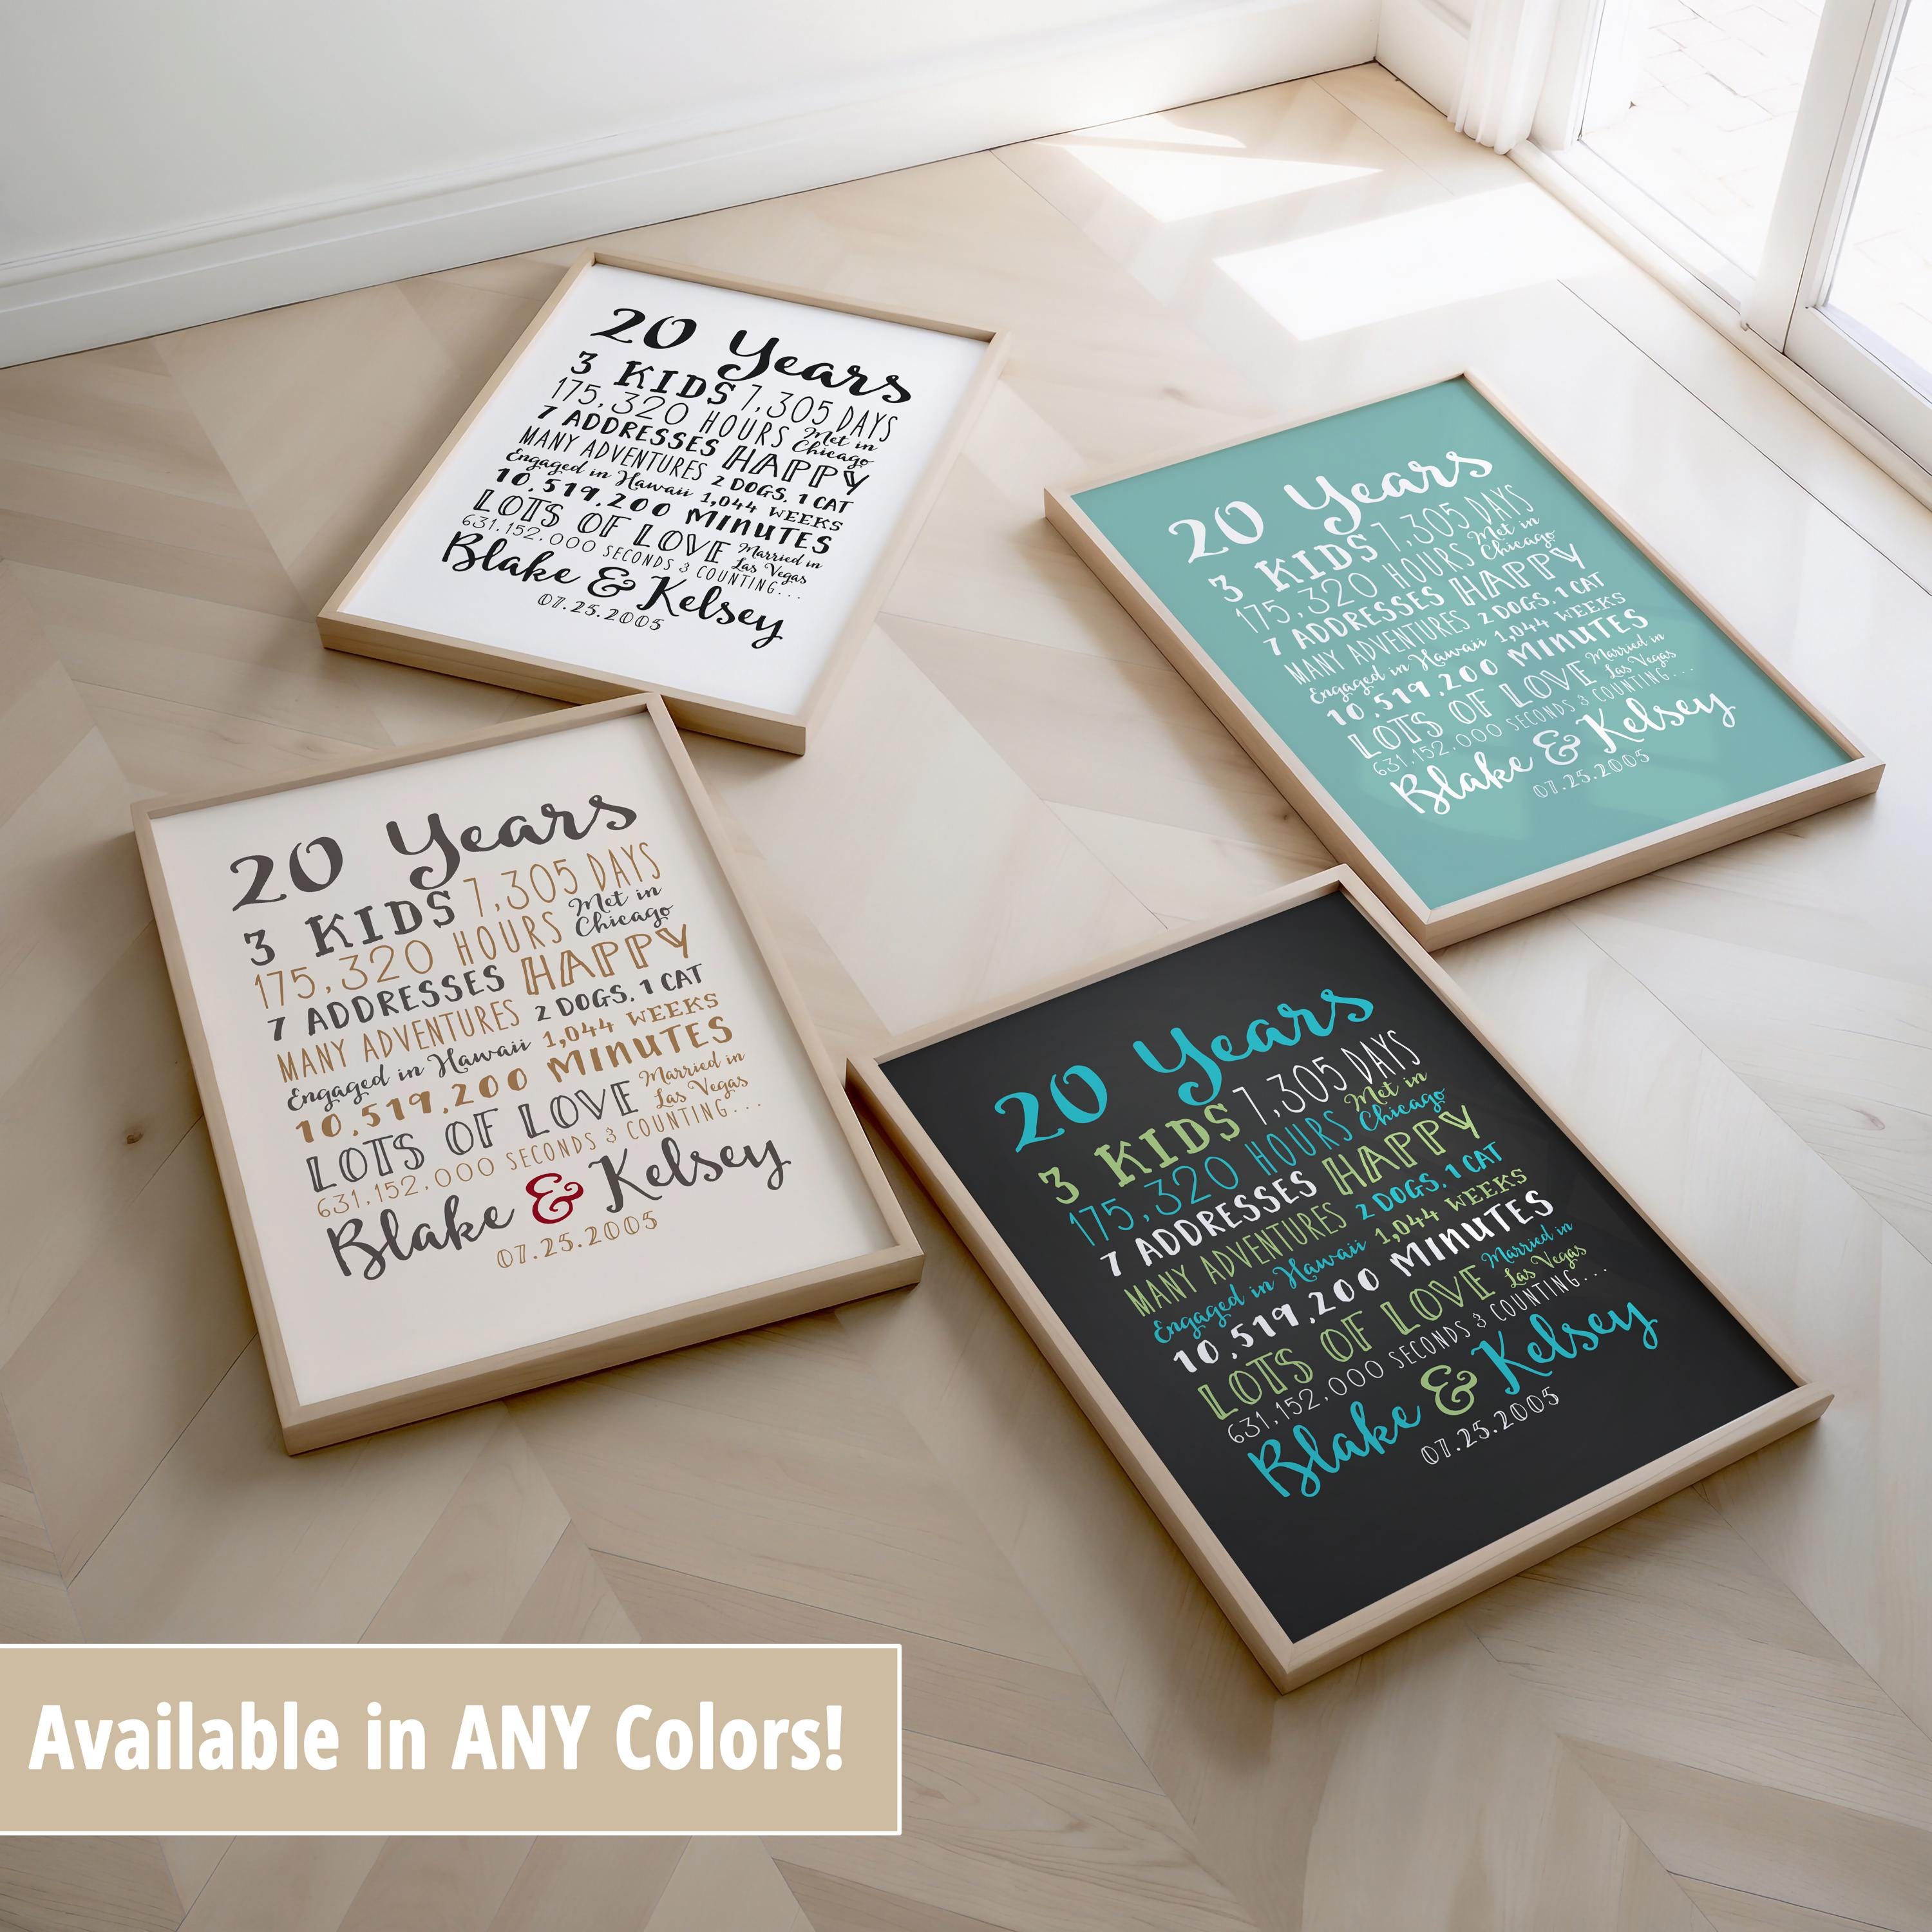 20 Years
3 KIDS 7,305 DAYS
175,320 HOURS Met in Chicago
7 ADDRESSES HAPPY
MANY ADVENTURES 2 DOGS, 1 CAT
Engaged in Hawaii 1,044 WEEKS
10,519,200 MINUTES
LOTS OF LOVE Married in Las Vegas
631,152,000 SECONDS & COUNTING...
Blake & Kelsey
07.25.2005
20 Years
3 KIDS 7,305 DAYS
175,320 HOURS Met in Chicago
7 ADDRESSES HAPPY
MANY ADVENTURES 2 DOGS, 1 CAT
Engaged in Hawaii 1,044 WEEKS
10,519,200 MINUTES
LOTS OF LOVE Married in Las Vegas
631,152,000 SECONDS & COUNTING...
Blake & Kelsey
07.25.2005
20 Years
3 KIDS 7,305 DAYS
175,320 HOURS Met in Chicago
7 ADDRESSES HAPPY
MANY ADVENTURES 2 DOGS, 1 CAT
Engaged in Hawaii 1,044 WEEKS
10,519,200 MINUTES
LOTS OF LOVE Married in Las Vegas
631,152,000 SECONDS & COUNTING...
Blake & Kelsey
07.25.2005
20 Years
3 KIDS 7,305 DAYS
175,320 HOURS Met in Chicago
7 ADDRESSES HAPPY
MANY ADVENTURES 2 DOGS, 1 CAT
Engaged in Hawaii 1,044 WEEKS
10,519,200 MINUTES
LOTS OF LOVE Married in Las Vegas
631,152,000 SECONDS & COUNTING...
Blake & Kelsey
07.25.2005
Available in ANY Colors!